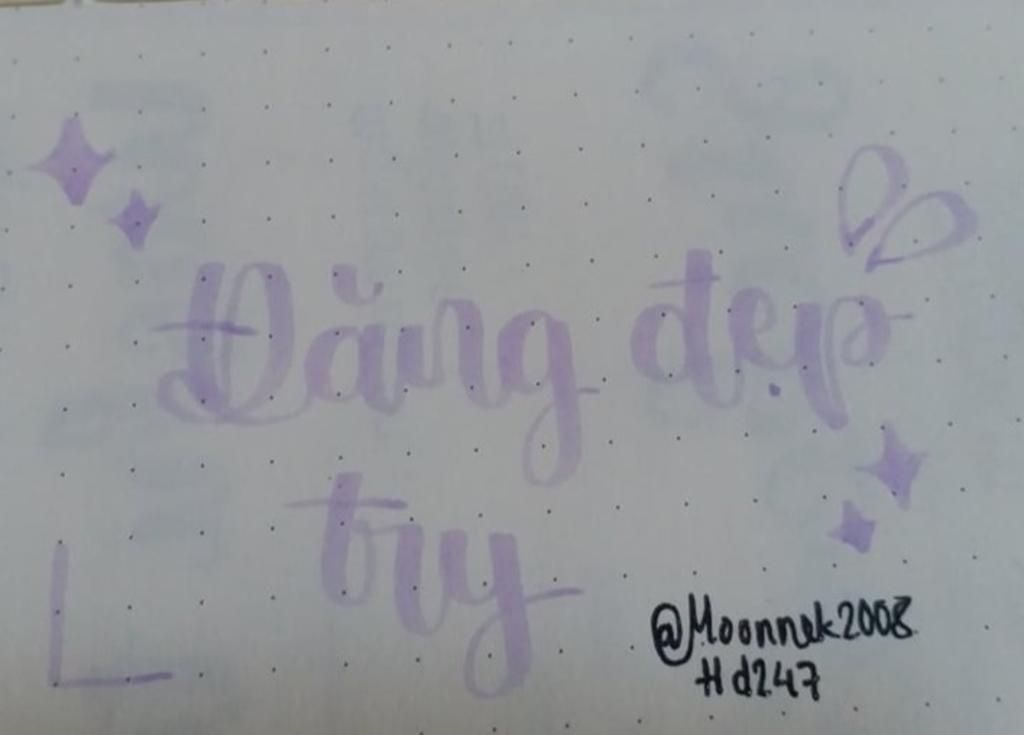 Đăng đẹp
try
@Moonnek2008
Hd247